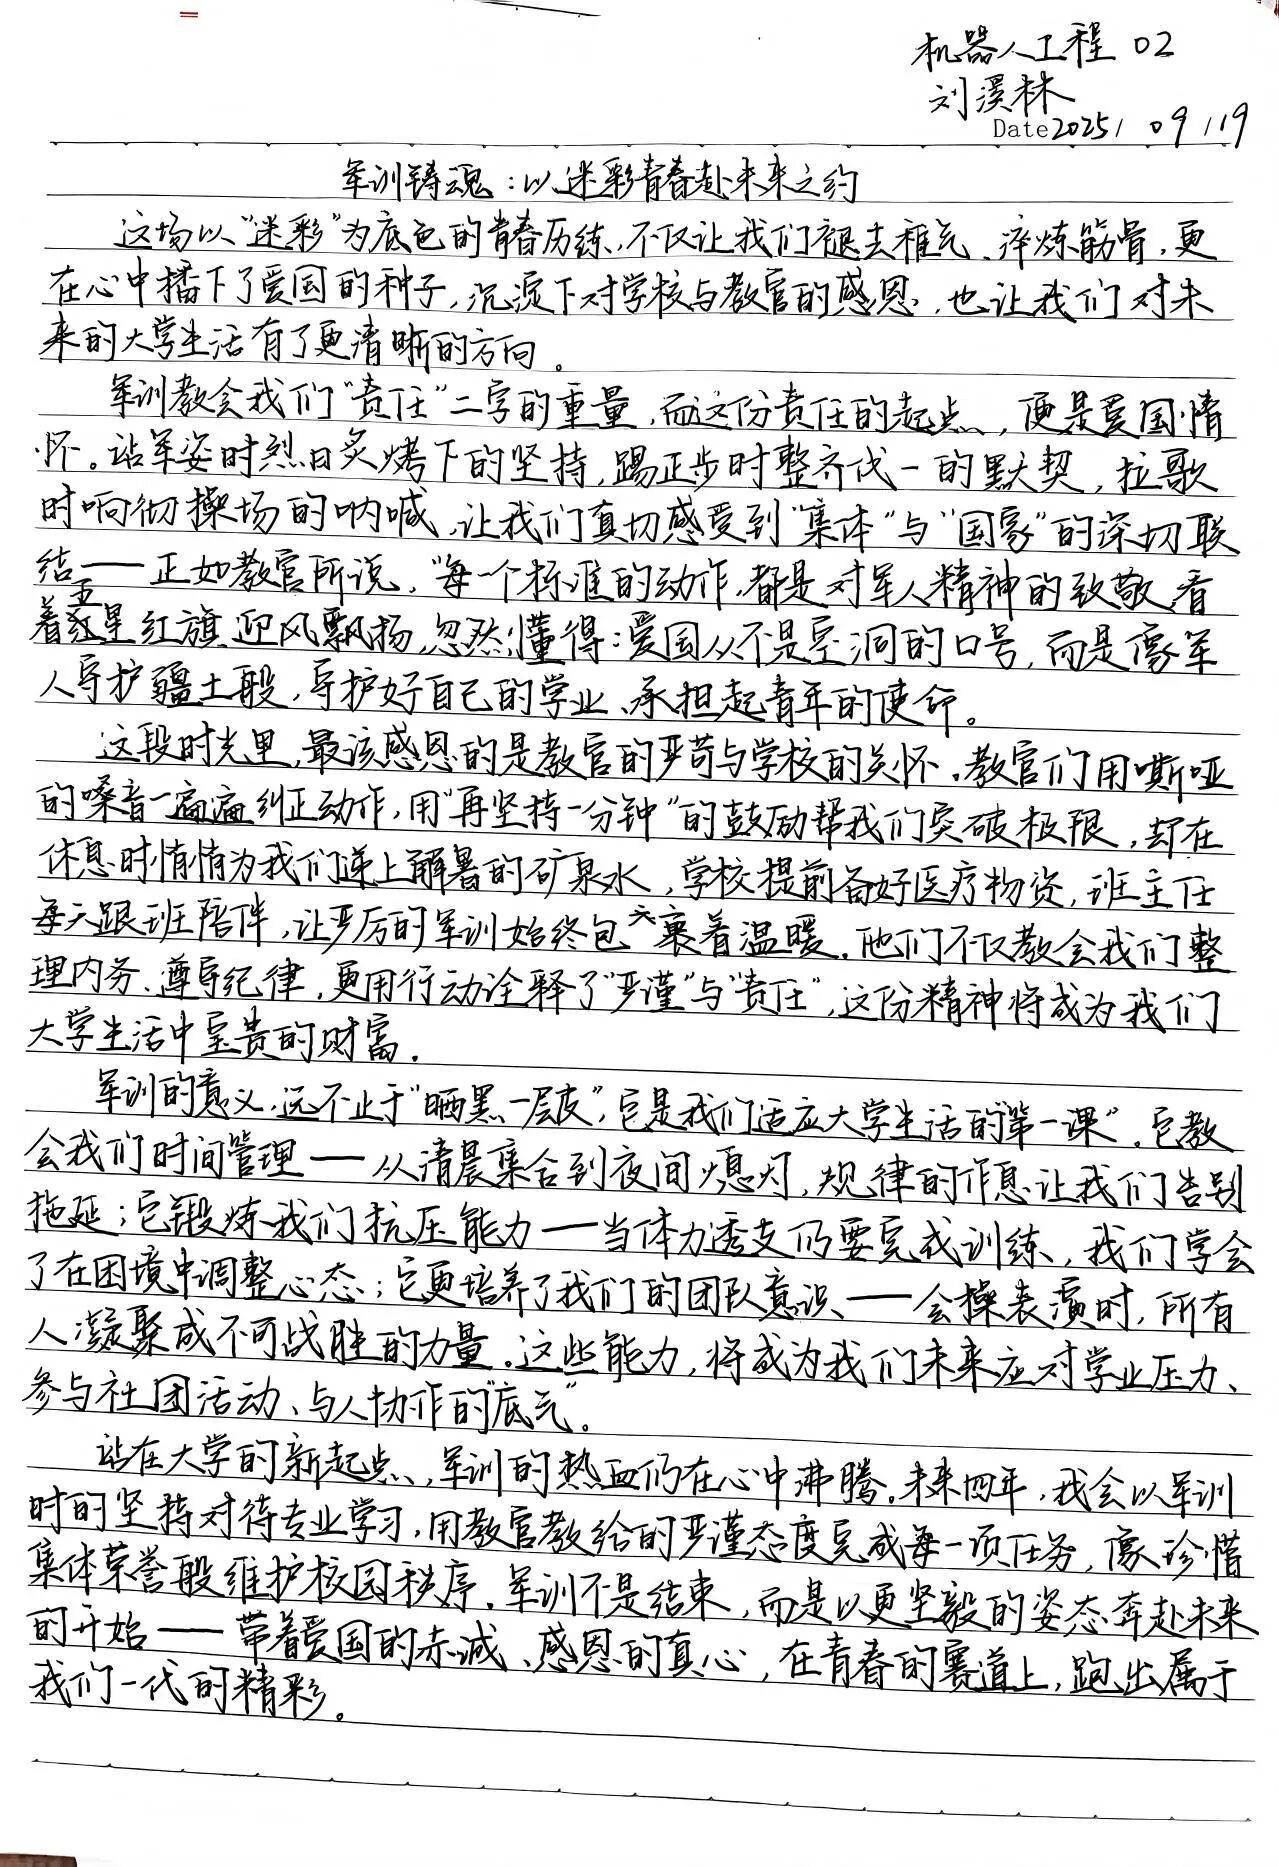 机器人工程 02
刘溪林
Date 2025/ 09/19
军训铸魂：以迷彩青春赴未来之约
这场以“迷彩”为底色的青春历练，不仅让我们褪去稚气、淬炼筋骨，更
在心中播下了爱国的种子，沉淀下对学校与教官的感恩，也让我们对未
来的大学生活有了更清晰的方向。
军训教会我们“责任”二字的重量，而这份责任的起点，便是爱国情
怀。站军姿时烈日炙烤下的坚持，踢正步时整齐伐一的默契，拉歌
时响彻操场的呐喊，让我们真切感受到“集体”与“国家”的深切联
结——正如教官所说，“每一个标准的动作，都是对军人精神的致敬，看
着五星红旗迎风飘扬，忽然懂得：爱国从不是空洞的口号，而是像军
人守护疆土般，守护好自己的学业、承担起青年的使命。
这段时光里，最该感恩的是教官的严苛与学校的关怀。教官们用嘶哑
的嗓音一遍遍纠正动作，用“再坚持一分钟”的鼓励帮我们突破极限，却在
休息时悄悄为我们递上解暑的矿泉水，学校提前备好医疗物资，班主任
每天跟班陪伴，让严厉的军训始终包裹着温暖。他们不仅教会我们整
理内务、尊守纪律，更用行动诠释了“严谨”与“责任”，这份精神将成为我们
大学生活中宝贵的财富。
军训的意义，远不止于“晒黑一层皮”，它是我们适应大学生活的“第一课”。它教
会我们时间管理——从清晨集合到夜间熄灯，规律的作息让我们告别
拖延；它锻炼我们抗压能力——当体力透支仍要完成训练，我们学会
了在困境中调整心态；它更培养了我们的团队意识——会操表演时，所有
人凝聚成不可战胜的力量。这些能力，将成为我们未来应对学业压力、
参与社团活动、与人协作的“底气”。
站在大学的新起点，军训的热血仍在心中沸腾。未来四年，我会以军训
时的坚持对待专业学习，用教官教给的严谨态度完成每一项任务，像珍惜
集体荣誉般维护校园秩序。军训不是结束，而是以更坚毅的姿态奔赴未来
的开始——带着爱国的赤诚、感恩的真心，在青春的赛道上，跑出属于
我们一代的精彩。